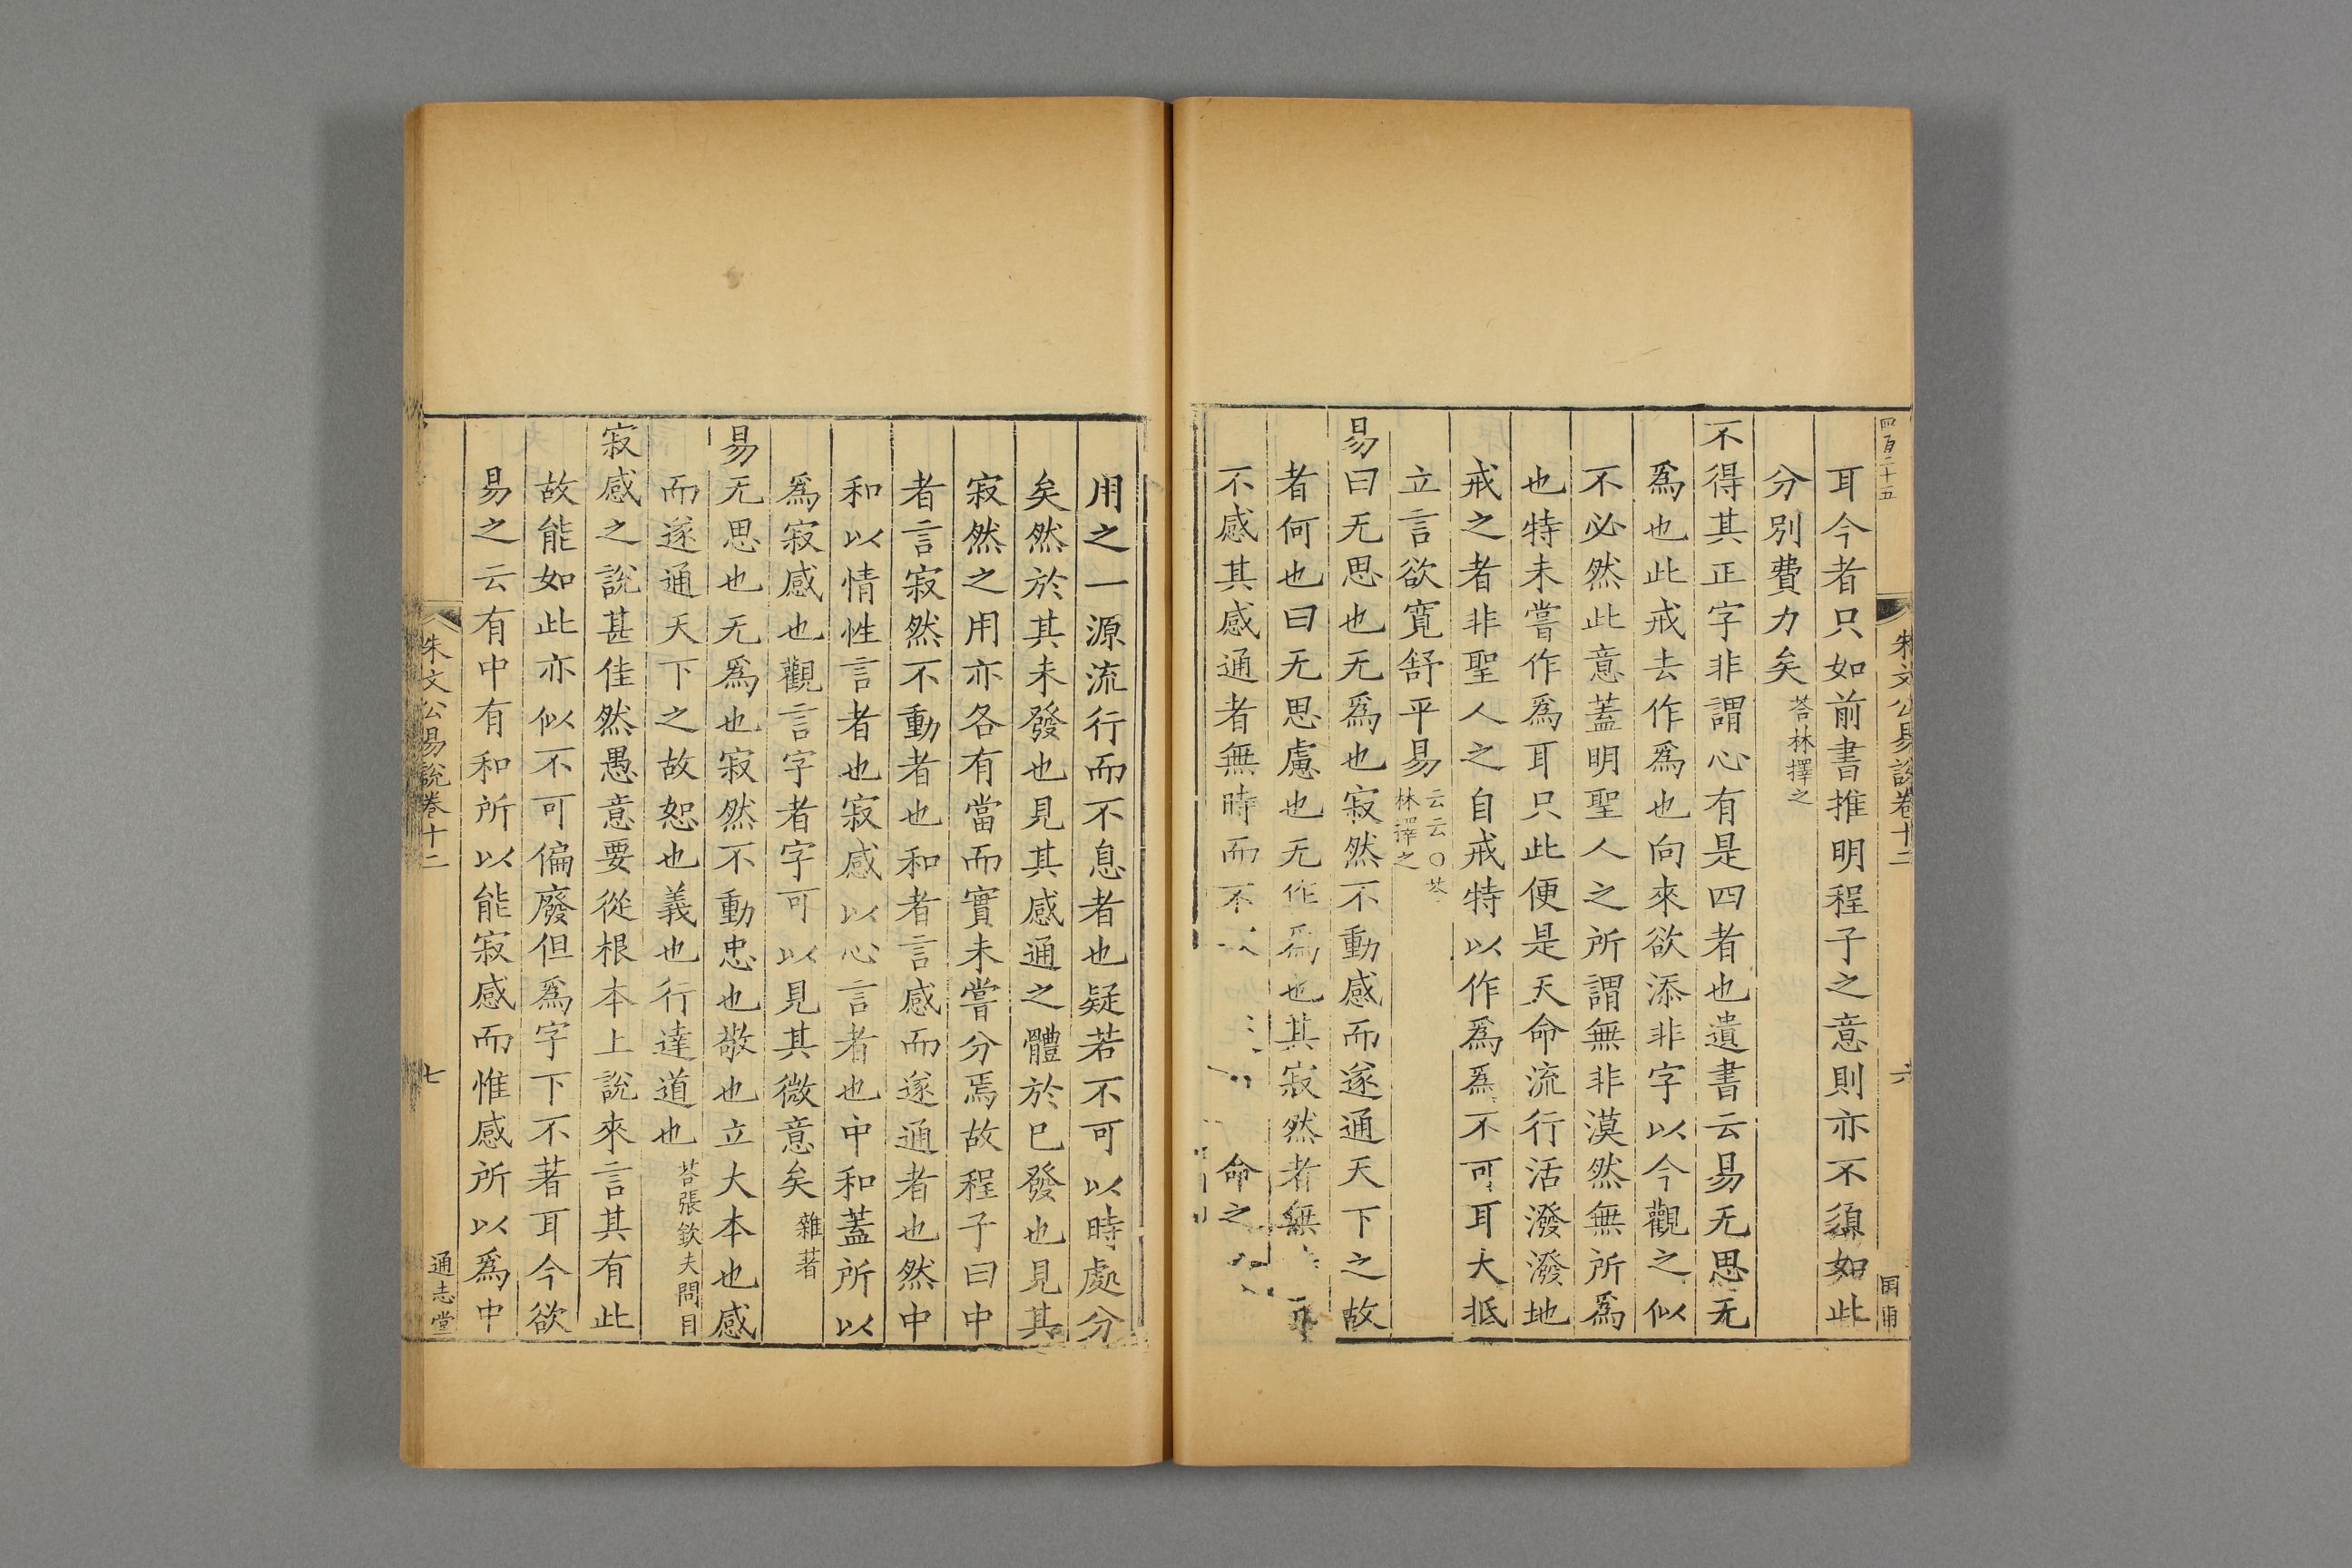 四百二十五
朱文公易說卷十二
六
耳今者只如前書推明程子之意則亦不須如此
分別費力矣答林擇之
不得其正字非謂心有是四者也遺書云易无思无
爲也此戒去作爲也向來欲添非字以今觀之似
不必然此意蓋明聖人之所謂無非漠然無所爲
也特未嘗作爲耳只此便是天命流行活潑潑地
戒之者非聖人之自戒特以作爲爲不可耳大抵
立言欲寬舒平易云云○答
林擇之
易曰无思也无爲也寂然不動感而遂通天下之故
者何也曰无思慮也无作爲也其寂然者無
不感其感通者無時而不 命之
用之一源流行而不息者也疑若不可以時處分
矣然於其未發也見其感通之體於已發也見其
寂然之用亦各有當而實未嘗分焉故程子曰中
者言寂然不動者也和者言感而遂通者也然中
和以情性言者也寂感以心言者也中和蓋所以
爲寂感也觀言字者字可以見其微意矣雜著
易无思也无爲也寂然不動忠也敬也立大本也感
而遂通天下之故恕也義也行達道也答張欽夫問目
寂感之說甚佳然愚意要從根本上說來言其有此
故能如此亦似不可偏廢但爲字下不著耳今欲
易之云有中有和所以能寂感而惟感所以爲中
朱文公易說卷十二
七
通志堂